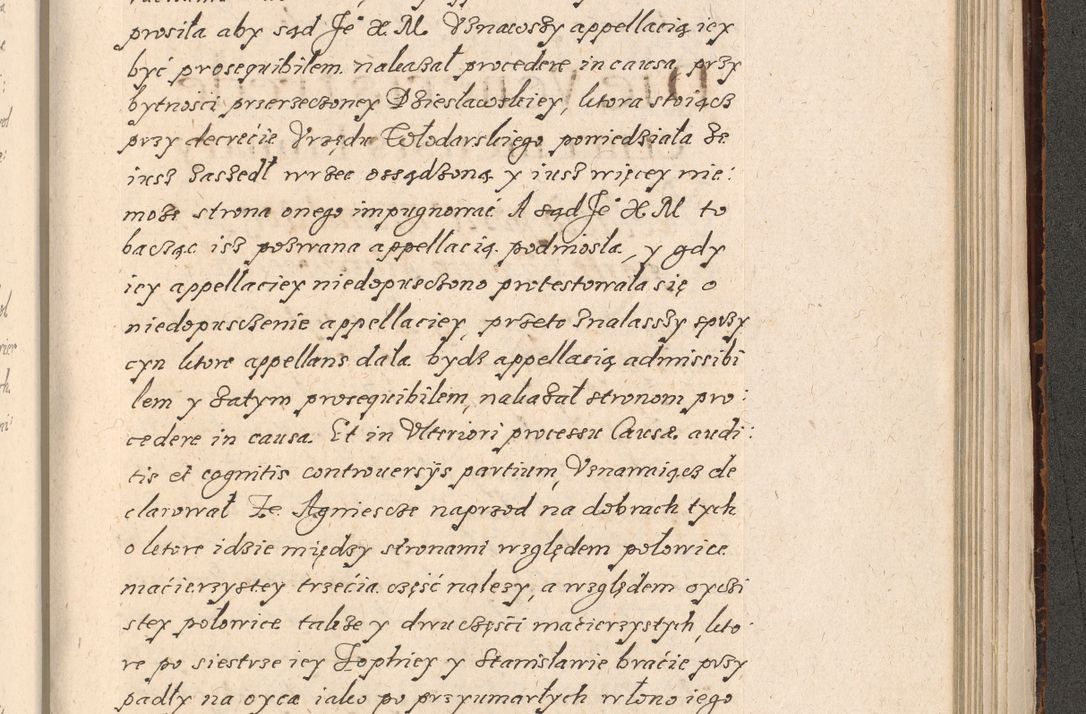 prosiła aby sąd Je° X. M. Vznawszy appellacią iey
być prosequibilem. nakazał procedere in causa przy
bytności przerzeczoney Dzieslawskiey, ktora stoiącz
przy decrecie Vrzędu Włodarskiego powiedziała że
iusz zaszedł wrzec ossądzoną y iusz więcey nie:
może strona onego impugnować A sąd Je° X M to
bacząc isz pozwana appellacią podniosła, y gdy
iey appellaciey niedopuszczono protestowała się o
niedopusczenie appellaciey, przeto znalaszsy sprzy
cyn ktore appellans dała bydz appellacią admissibi
lem y zatym prosequibilem, nakazał stronom pro:
cedere in causa. Et in Vlteriori processu Causæ. audi:
tis et cognitis controuersÿs partium, Vznawaiącz de
clarował Ze Agniescze naprzod na dobrach tych
o ktore idzie między stronami względem połowice
macierzystey trzecia część należy, a względem oyczi
stey połowice takze y dwu części macierzystych, kto
re po siestrze iey Zophiey y Stanisławie bracie przy
padły na oyca iako po przyumarłych w łono iego